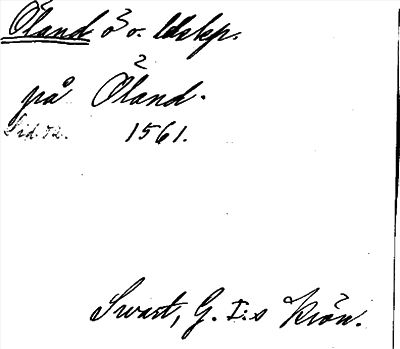 Öland ö o. ldskp.
på Öland.
Sid. 72. 1561.
Swart, G. I:s Krön.